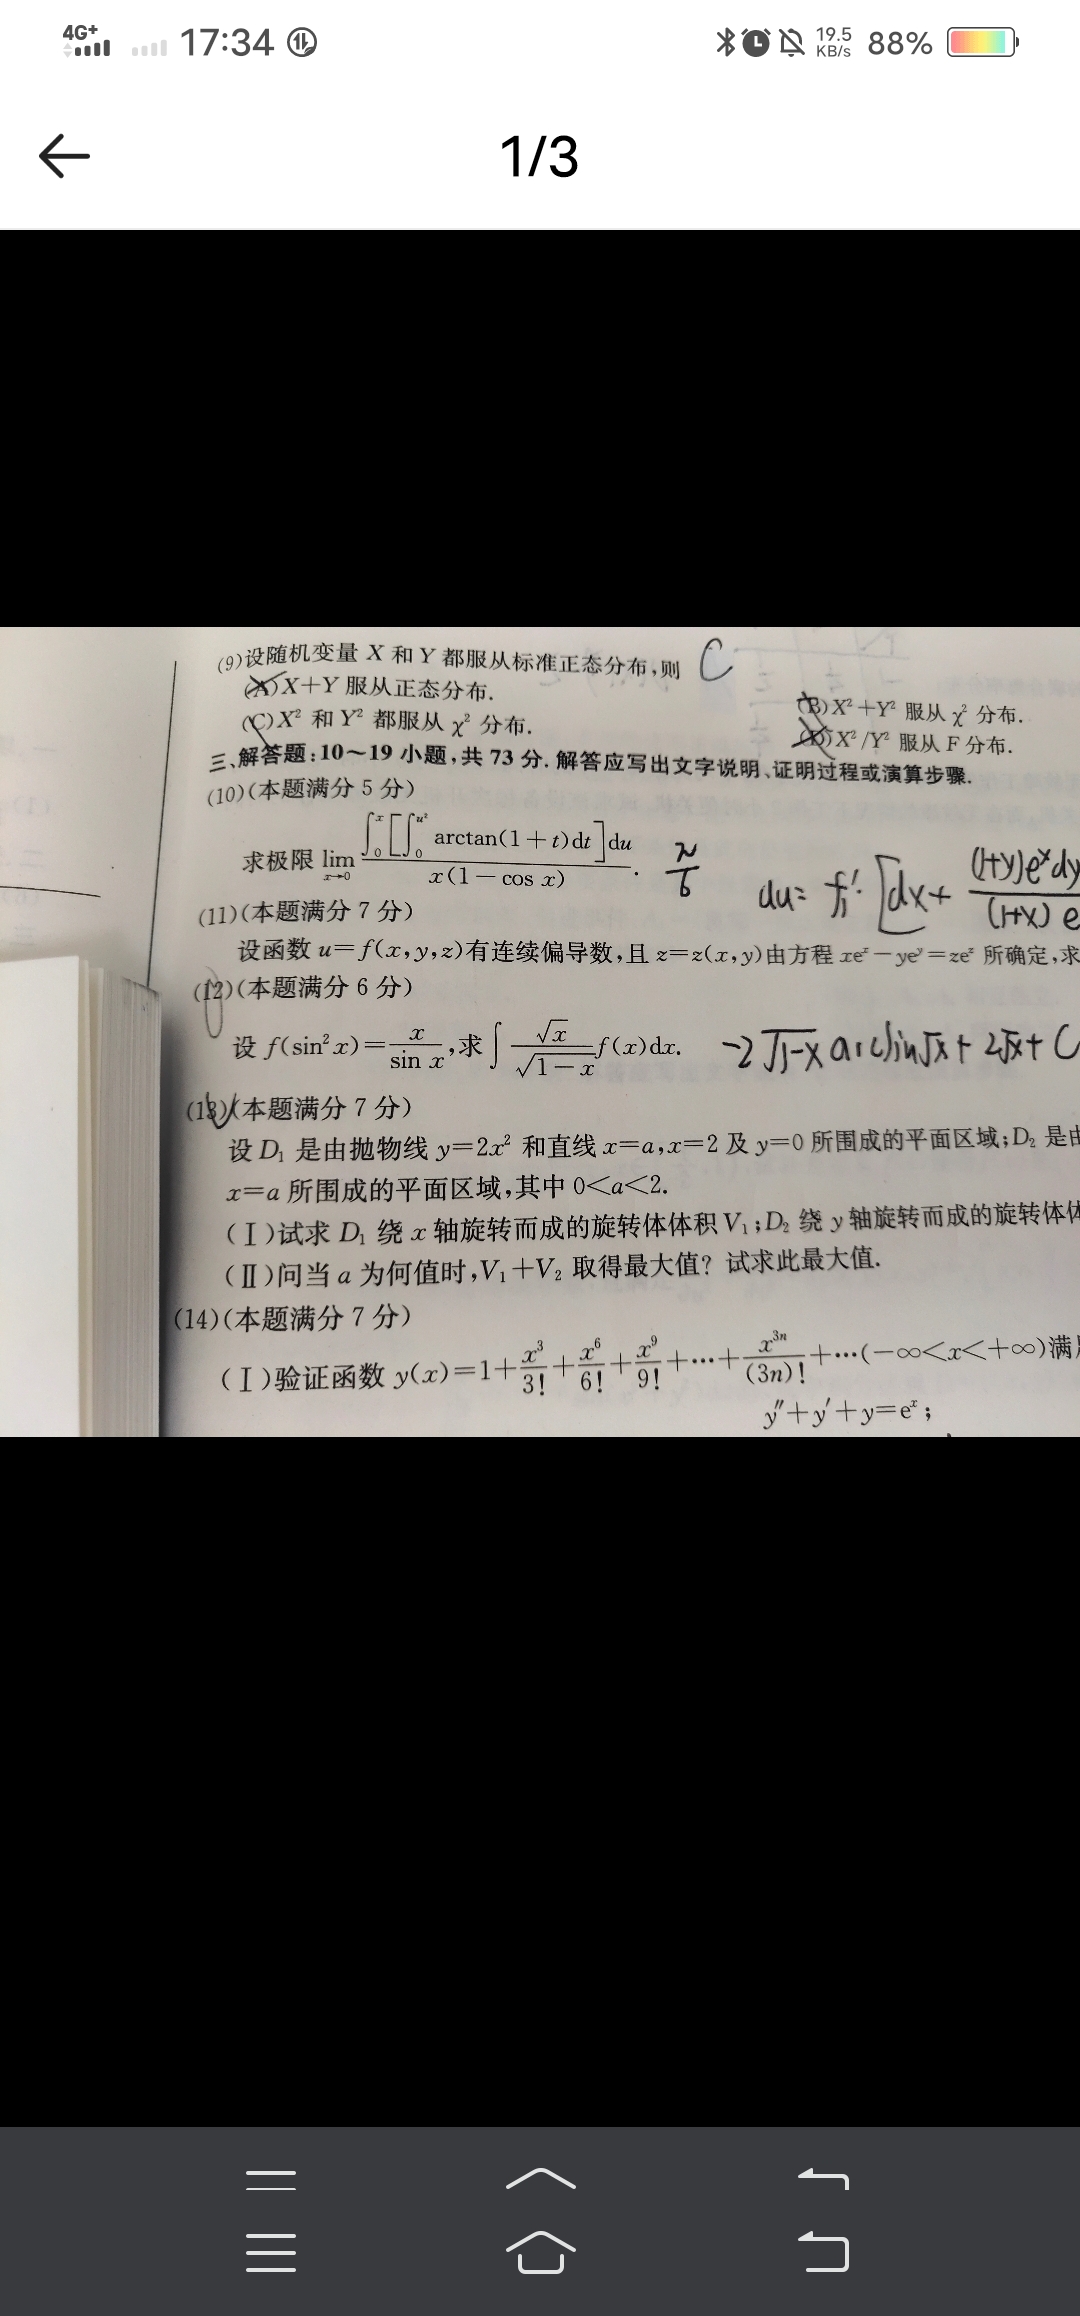 4G+ 17:34 19.5 KB/s 88%
1/3
(9)设随机变量 X 和 Y 都服从标准正态分布,则 C
(A)X+Y 服从正态分布.
(B)X²+Y² 服从 χ² 分布.
(C)X² 和 Y² 都服从 χ² 分布.
(D)X²/Y² 服从 F 分布.
三、解答题:10~19 小题,共 73 分. 解答应写出文字说明、证明过程或演算步骤.
(10)(本题满分 5 分)
求极限 lim_{x→0} ∫₀ˣ[∫₀^{u²} arctan(1+t)dt]du / x(1-cos x) . π/6
du= f₁′·[dx+ (1+y)eˣdy / (1+x)e
(11)(本题满分 7 分)
设函数 u=f(x,y,z)有连续偏导数,且 z=z(x,y)由方程 xeˣ-yeʸ=zeᶻ 所确定,求
(12)(本题满分 6 分)
设 f(sin²x)=x/sin x,求∫ √x/√1-x f(x)dx. -2√1-x arcsin√x+2√x+C
(13)(本题满分 7 分)
设 D₁ 是由抛物线 y=2x² 和直线 x=a,x=2 及 y=0 所围成的平面区域;D₂ 是由
x=a 所围成的平面区域,其中 0<a<2.
(Ⅰ)试求 D₁ 绕 x 轴旋转而成的旋转体体积 V₁;D₂ 绕 y 轴旋转而成的旋转体体
(Ⅱ)问当 a 为何值时,V₁+V₂ 取得最大值? 试求此最大值.
(14)(本题满分 7 分)
(Ⅰ)验证函数 y(x)=1+x³/3!+x⁶/6!+x⁹/9!+…+x³ⁿ/(3n)!+…(-∞<x<+∞)满足
y″+y′+y=eˣ;